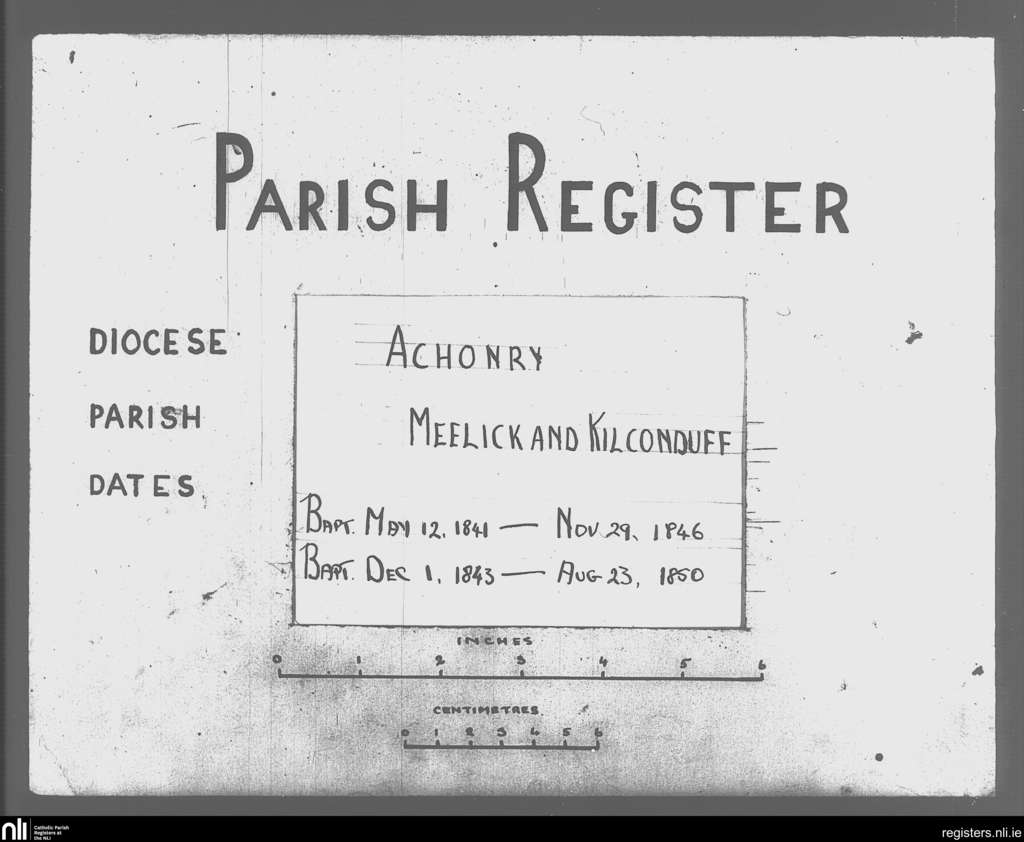 PARISH REGISTER
DIOCESE ACHONRY
PARISH MEELICK AND KILCONDUFF
DATES
BAPT. MAY 12, 1841 — NOV 29, 1846
BAPT. DEC 1, 1843 — AUG 23, 1850
INCHES
0 1 2 3 4 5 6
CENTIMETRES
0 1 2 3 4 5 6
nli Catholic Parish
Registers at
the NLI
registers.nli.ie